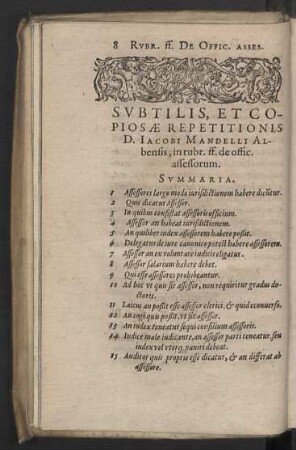 8 RVBR. ff. DE OFFIC. ASSES.
SVBTILIS, ET CO-
PIOSÆ REPETITIONIS
D. IACOBI MANDELLI AL-
bensis, in rubr. ff. de offic.
assessorum.
SVMMARIA.
1 Assessores largo modo iurisdictionem habere dicūtur.
2 Quis dicatur Assessor.
3 In quibus consistat assessoris officium.
4 Assessor an habeat iurisdictionem.
5 An quilibet iudex assessorem habere possit.
6 Delegatus de iure canonico potest habere assessorem.
7 Assessor an ex voluntate iudicis eligatur.
8 Assessor salarium habere debet.
9 Qui esse assessores prohibeantur.
10 Ad hoc vt quis sit assessor, non requiritur gradus do-
ctoris.
11 Laicus an possit esse assessor clerici, & quid econuerso.
12 An cogi quis possit, vt sit assessor.
13 An iudex teneatur sequi consilium assessoris.
14 Iudice male iudicante, an assessor parti teneatur, seu
iudex vel vterq; puniri debeat.
15 Auditor quis proprie esse dicatur, & an differat ab
assessore.